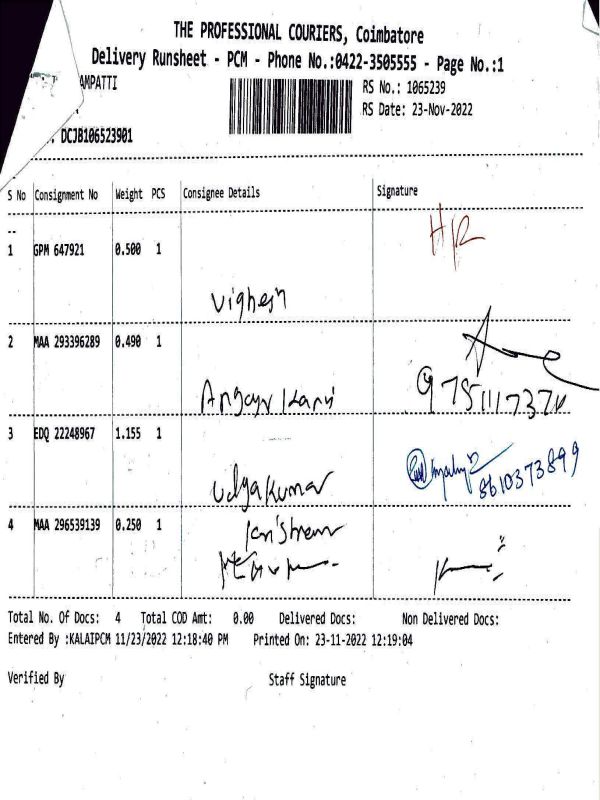 THE PROFESSIONAL COURIERS, Coimbatore
Delivery Runsheet - PCM - Phone No.:0422-3505555 - Page No.:1
AMPATTI
RS No.: 1065239
RS Date: 23-Nov-2022
DCJB106523901
S No Consignment No Weight PCS Consignee Details Signature
1 GPM 647921 0.500 1
H/R
Vighesh
2 MAA 293396289 0.490 1
3 EDQ 22248967 1.155 1
8610373899
Udyakumar
4 MAA 296539139 0.250 1
Total No. Of Docs: 4 Total COD Amt: 0.00 Delivered Docs: Non Delivered Docs:
Entered By :KALAIPCM 11/23/2022 12:18:40 PM Printed On: 23-11-2022 12:19:04
Verified By Staff Signature